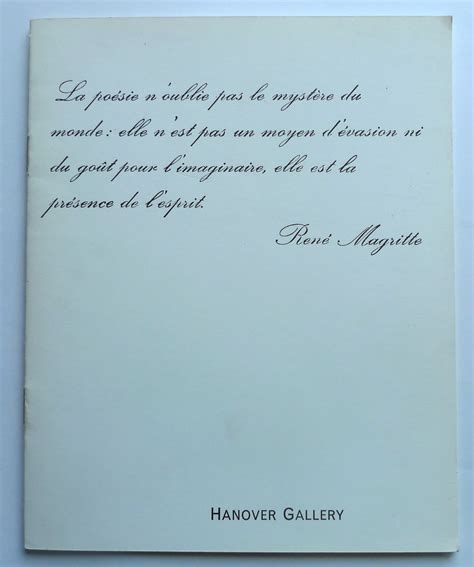 La poésie n'oublie pas le mystère du
monde : elle n'est pas un moyen d'évasion ni
du goût pour l'imaginaire, elle est la
présence de l'esprit.
René Magritte
HANOVER GALLERY